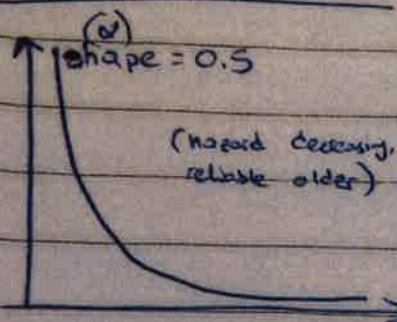 (α)
shape = 0.5
(hazard decreasing,
reliable older)